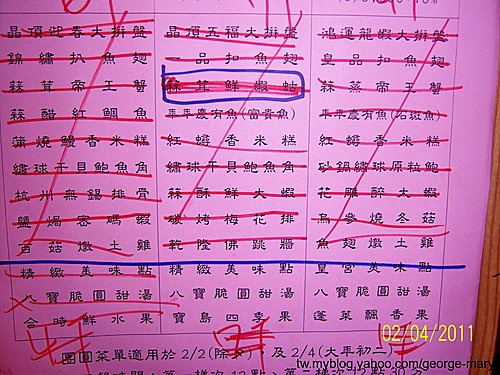 晶頂迎春大拼盤
錦繡扒魚翅
蒜茸帝王蟹
蒜醋紅鯛魚
蒲燒鰻香米糕
繡球干貝鮑魚角
杭州無錫排骨
鹽焗密碼蝦
百菇燉土雞
精緻美味點
八寶脆圓甜湯
合時鮮水果
晶頂五福大拼盤
一品扣魚翅
蒜茸鮮蝦蛄
年年慶有魚(富貴魚)
紅蟳香米糕
繡球干貝鮑魚角
蒜酥鮮大蝦
碳烤梅花排
乾隆佛跳牆
精緻美味點
八寶脆圓甜湯
寶島四季果
鴻運龍蝦大拼盤
皇品扣魚翅
蒜蒸帝王蟹
年年慶有魚(石斑魚)
紅蟳香米糕
砂鍋繡球原粒鮑
花雕醉大蝦
烏參燒冬菇
魚翅燉土雞
皇宮美味點
八寶脆圓甜湯
蓬萊飄香果
團圓菜單適用於 2/2(除夕)，及 2/4(大年初二)
02/04/2011
tw.myblog.yahoo.com/george-mary